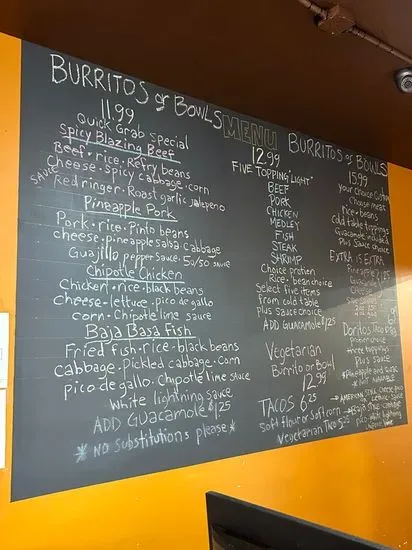 BURRITOS or BOWLS
11.99
Quick Grab Special
Spicy Blazing Beef
Beef · rice · Refry beans
Cheese · spicy cabbage · corn
Red ringer · Roast garlic jalapeno
SAUCE
Pineapple Pork
Pork · rice · Pinto beans
cheese · pineapple salsa cabbage
Guajillo pepper sauce · 50/50 sauce
Chipotle Chicken
Chicken · rice · black beans
Cheese · lettuce · pico de gallo
corn · Chipotle lime sauce
Baja Basa Fish
Fried fish · rice · black beans
cabbage · Pickled cabbage · Corn
pico de gallo · Chipotle lime sauce
White lightning sauce
ADD GUACAMOLE $1.25
* NO substitutions please *
MENU
12.99
FIVE TOPPING "LIGHT"
BEEF
PORK
CHICKEN
MEDLEY
FISH
STEAK
SHRIMP
Choice protien
Rice · bean choice
Select five items
from cold table
plus sauce choice
ADD GUACAMOLE $1.25
Vegetarian
Burrito or Bowl
12.99
TACOS 6.25
Soft flour or soft corn
Vegetarian Taco 5.25
BURRITOS or BOWLS
15.99
your choice
Choose meat
Rice · beans
cold table toppings
Guacamole included
Plus Sauce choice
EXTRA IS EXTRA
Pineapple
Guacamole
Doritos Taco bag
Protein choice
three toppings
Plus sauce